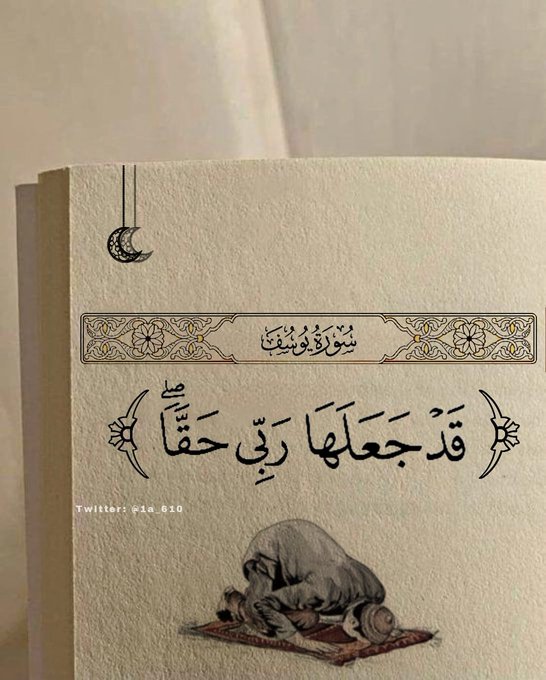 سُورَةُ يُوسُفَ
﴿قَدْ جَعَلَهَا رَبِّي حَقًّاۖ﴾
Twitter: @1a_610